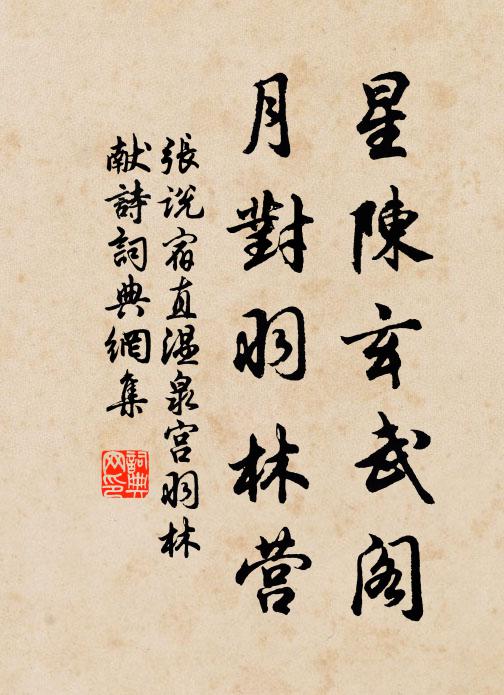 星陳玄武閣
月對羽林营
張说宿直温泉宫羽林
献詩詞典網集
詞典网印